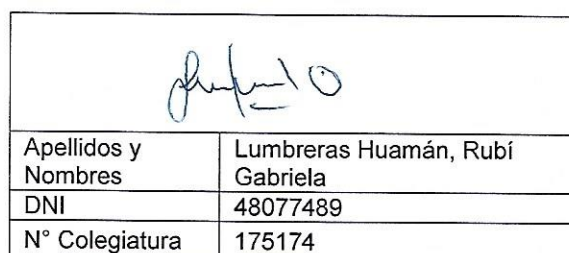 Apellidos y
Nombres
Lumbreras Huamán, Rubí
Gabriela
DNI 48077489
N° Colegiatura 175174